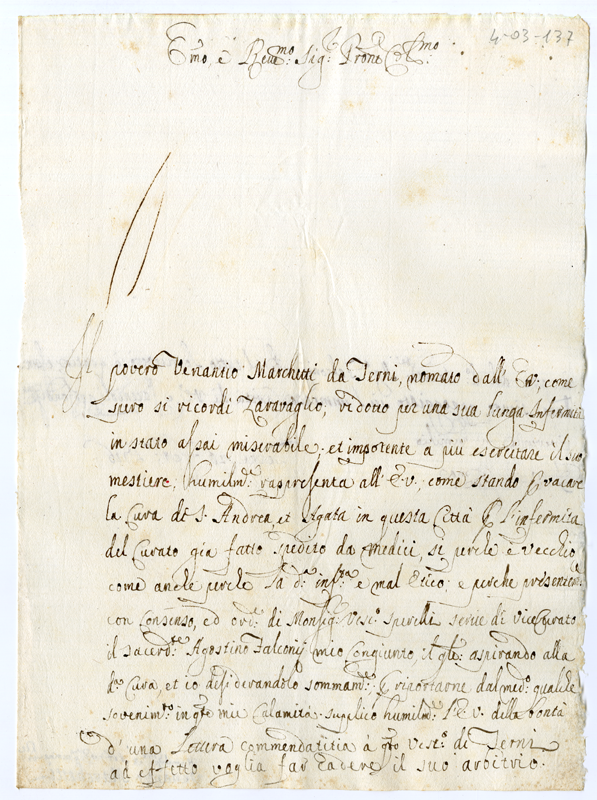 4-03-137
Emo, e Revmo: Sigr Prone Colmo:
Il povero Venantio Marchetti da Terni, nomato dall' Ev; come
spero si ricordi Zaravaglio, ridotto per una sua lunga Infermità
in stato assai miserabile, et impotente a più esercitare il suo
mestiere, humilmte: rappresenta all' E.V., come stando p vacare
la Cura di S. Andrea, et Agata in questa Città p l'infermità
del Curato già fatto spedito da Medici, sì perche è vecchio
come anche perche la da: infta: è mal Etico; e perche presentemte:
con Consenso, ed ordne: di Monsigr: Vesco: Sperelli serve di ViceCurato
il Sacerdte: Agostino Falconij mio Congiunto, il qle: aspirando alla
da: Cura, et io desiderandolo sommamte: p riportarne dal medo: qualche
sovenimto: in qta mia Calamità supplico humilmte: l'E.V. della bontà
d'una Lettera commendatitia à qto Vesco: di Terni
ad effetto voglia far cadere il suo arbitrio.